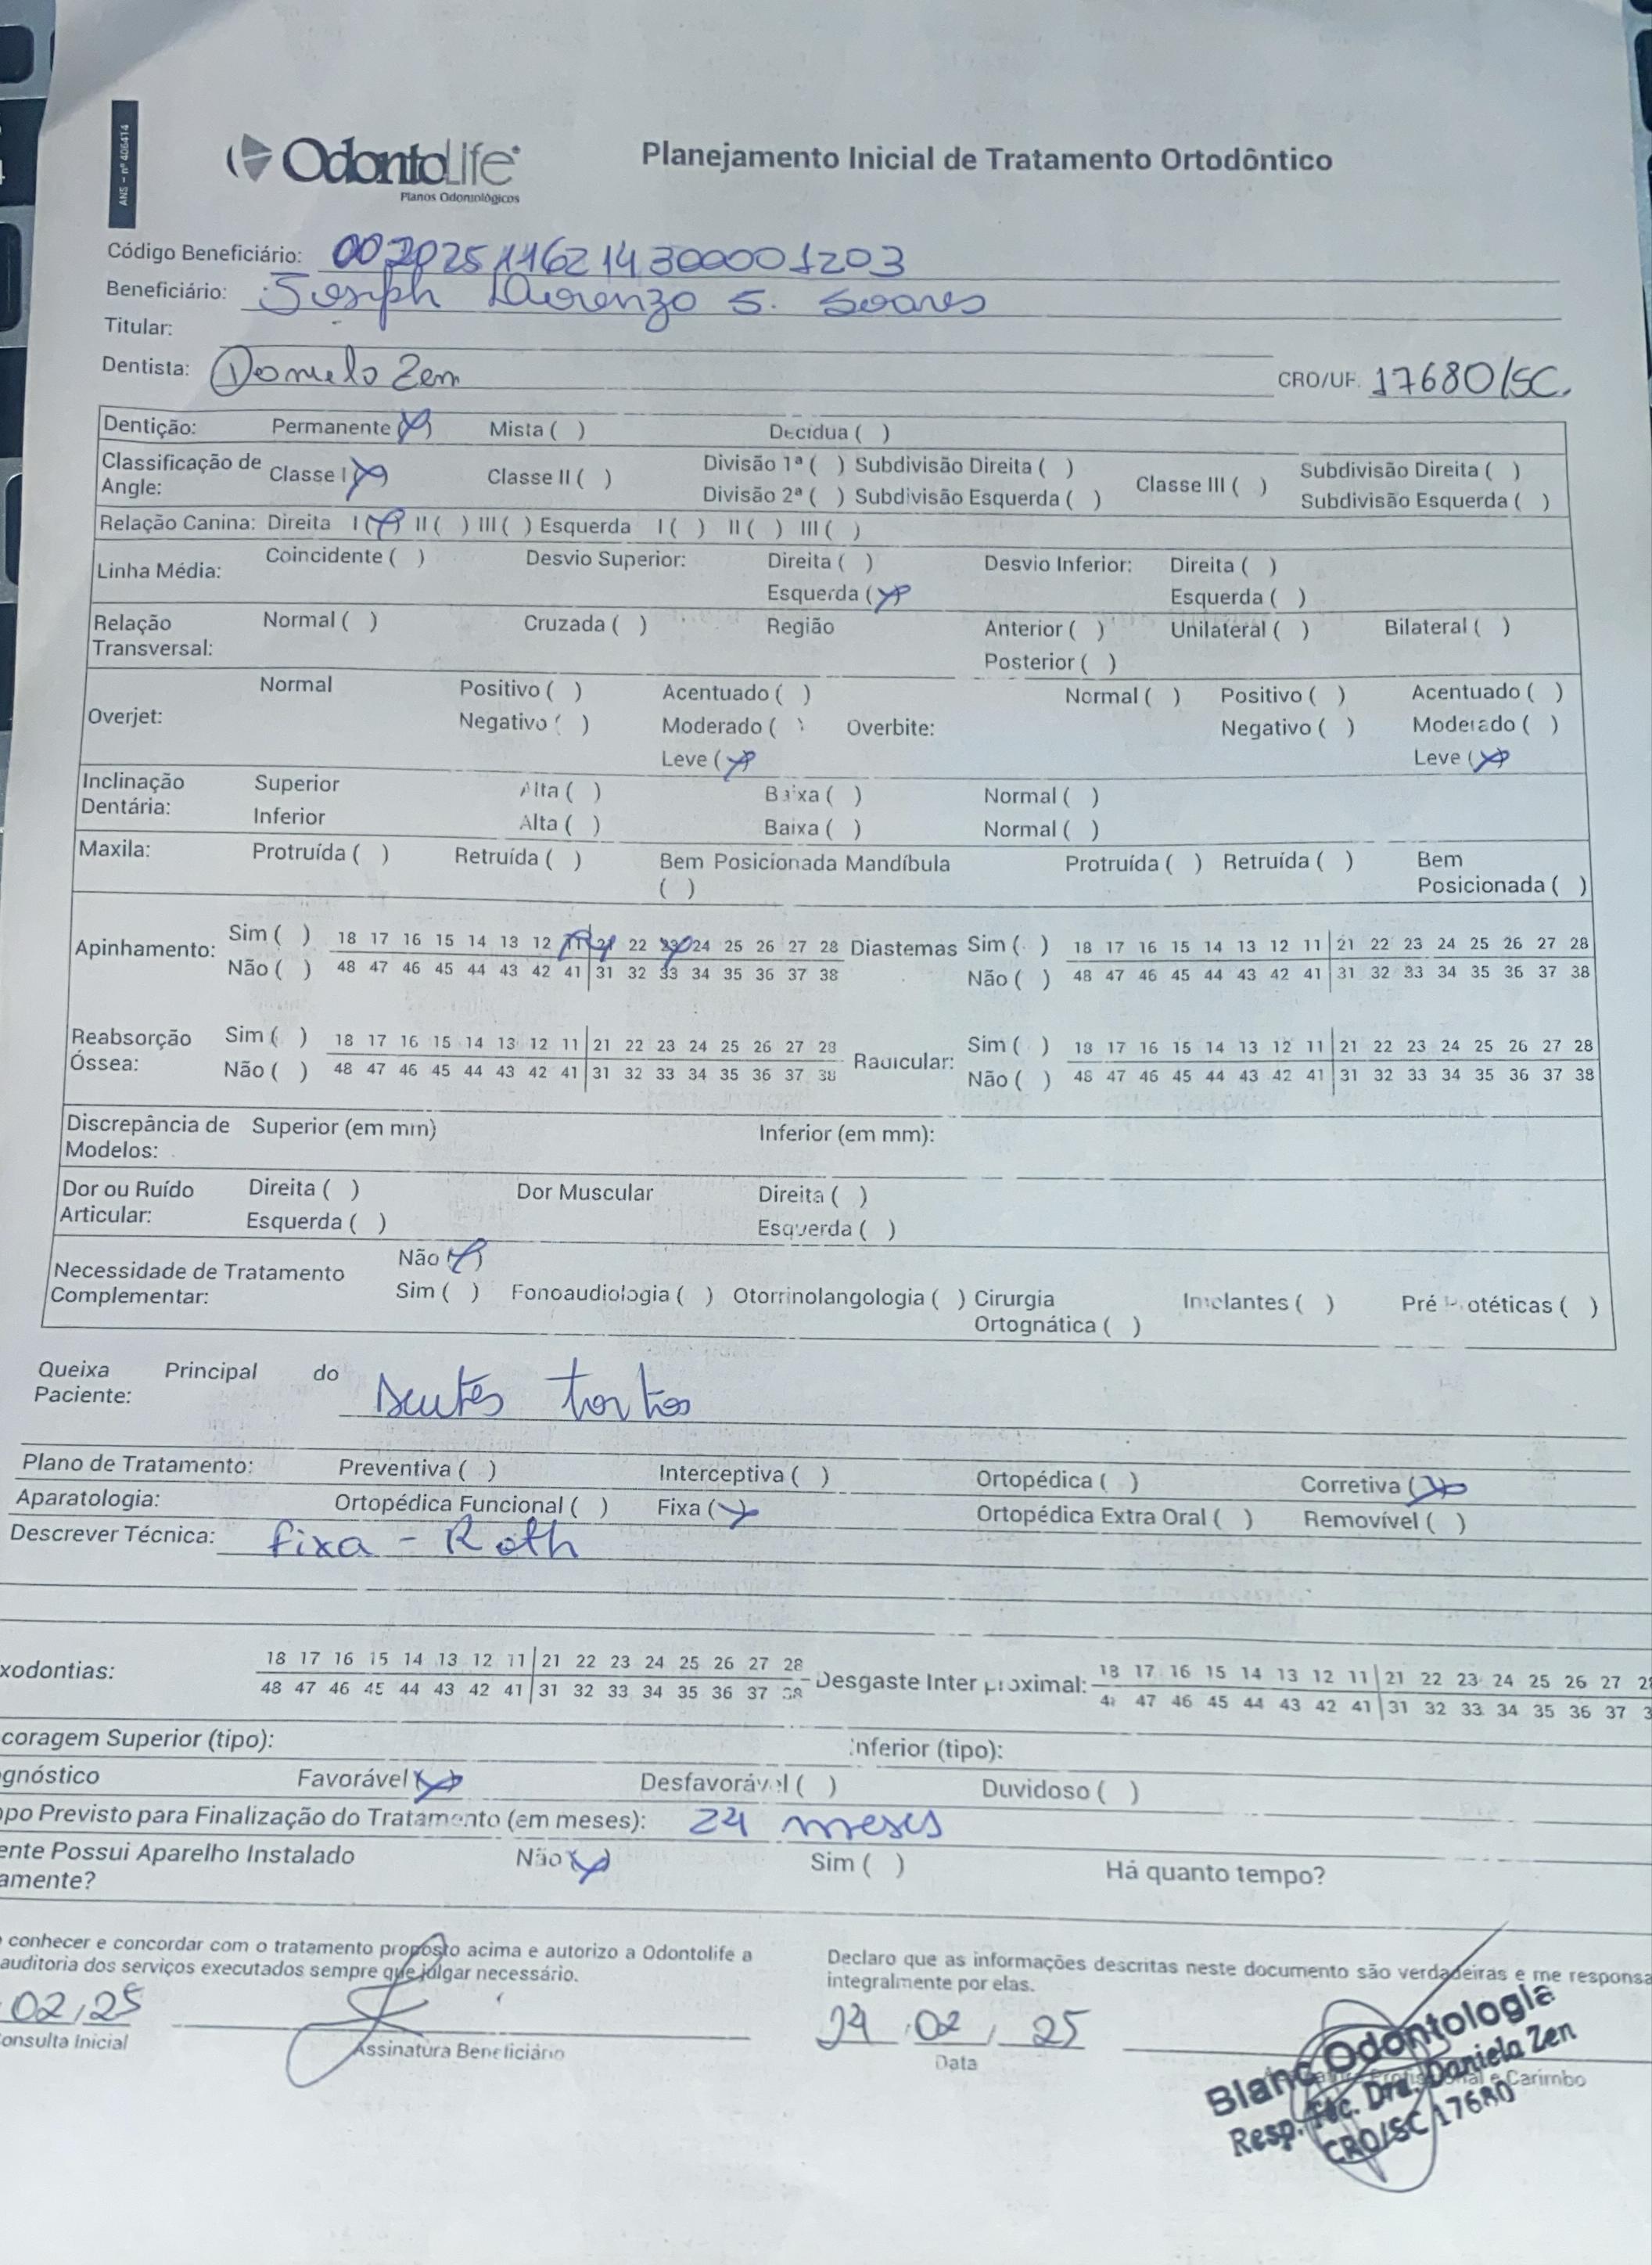 ANS - nº 406414
OdontoLife
Planos Odontológicos
Planejamento Inicial de Tratamento Ortodôntico
Código Beneficiário: 00202511621430000 1203
Beneficiário: Joseph Lourenzo S. Soares
Titular:
Dentista: Daniela Zen CRO/UF. 17680/SC.
Dentição: Permanente (X) Mista ( ) Decídua ( )
Classificação de Angle: Classe I (X) Classe II ( ) Divisão 1ª ( ) Subdivisão Direita ( ) Classe III ( ) Subdivisão Direita ( )
Divisão 2ª ( ) Subdivisão Esquerda ( ) Subdivisão Esquerda ( )
Relação Canina: Direita I (X) II ( ) III ( ) Esquerda I ( ) II ( ) III ( )
Linha Média: Coincidente ( ) Desvio Superior: Direita ( ) Desvio Inferior: Direita ( )
Esquerda (X) Esquerda ( )
Relação Transversal: Normal ( ) Cruzada ( ) Região Anterior ( ) Unilateral ( ) Bilateral ( )
Posterior ( )
Overjet: Normal Positivo ( ) Acentuado ( ) Overbite: Normal ( ) Positivo ( ) Acentuado ( )
Negativo ( ) Moderado ( ) Negativo ( ) Moderado ( )
Leve (X) Leve (X)
Inclinação Dentária: Superior Alta ( ) Baixa ( ) Normal ( )
Inferior Alta ( ) Baixa ( ) Normal ( )
Maxila: Protruída ( ) Retruída ( ) Bem Posicionada ( ) Mandíbula Protruída ( ) Retruída ( ) Bem Posicionada ( )
Apinhamento: Sim ( ) 18 17 16 15 14 13 12 11 21 22 23 24 25 26 27 28 Diastemas Sim ( ) 18 17 16 15 14 13 12 11 21 22 23 24 25 26 27 28
Não ( ) 48 47 46 45 44 43 42 41 31 32 33 34 35 36 37 38 Não ( ) 48 47 46 45 44 43 42 41 31 32 33 34 35 36 37 38
Reabsorção Óssea: Sim ( ) 18 17 16 15 14 13 12 11 21 22 23 24 25 26 27 28 Radicular: Sim ( ) 18 17 16 15 14 13 12 11 21 22 23 24 25 26 27 28
Não ( ) 48 47 46 45 44 43 42 41 31 32 33 34 35 36 37 38 Não ( ) 48 47 46 45 44 43 42 41 31 32 33 34 35 36 37 38
Discrepância de Modelos: Superior (em mm) Inferior (em mm):
Dor ou Ruído Articular: Direita ( ) Dor Muscular Direita ( )
Esquerda ( ) Esquerda ( )
Necessidade de Tratamento Complementar: Não (X)
Sim ( ) Fonoaudiologia ( ) Otorrinolangologia ( ) Cirurgia Ortognática ( ) Implantes ( ) Pré Protéticas ( )
Queixa Principal do Paciente: Dentes tortos
Plano de Tratamento: Preventiva ( ) Interceptiva ( ) Ortopédica ( ) Corretiva (X)
Aparatologia: Ortopédica Funcional ( ) Fixa (X) Ortopédica Extra Oral ( ) Removível ( )
Descrever Técnica: fixa - Roth
xodontias: 18 17 16 15 14 13 12 11 21 22 23 24 25 26 27 28 Desgaste Inter proximal: 18 17 16 15 14 13 12 11 21 22 23 24 25 26 27 2
48 47 46 45 44 43 42 41 31 32 33 34 35 36 37 38 48 47 46 45 44 43 42 41 31 32 33 34 35 36 37 3
coragem Superior (tipo): Inferior (tipo):
gnóstico Favorável (X) Desfavorável ( ) Duvidoso ( )
po Previsto para Finalização do Tratamento (em meses): 24 meses
ente Possui Aparelho Instalado Não (X) Sim ( ) Há quanto tempo?
amente?
conhecer e concordar com o tratamento proposto acima e autorizo a Odontolife a
auditoria dos serviços executados sempre que julgar necessário.
Declaro que as informações descritas neste documento são verdadeiras e me responsa
integralmente por elas.
02/25 24/02/25
onsulta Inicial Assinatura Beneficiário Data Carimbo
Blanc Odontologia
Resp. Téc. Dra. Daniela Zen
CRO/SC 17680